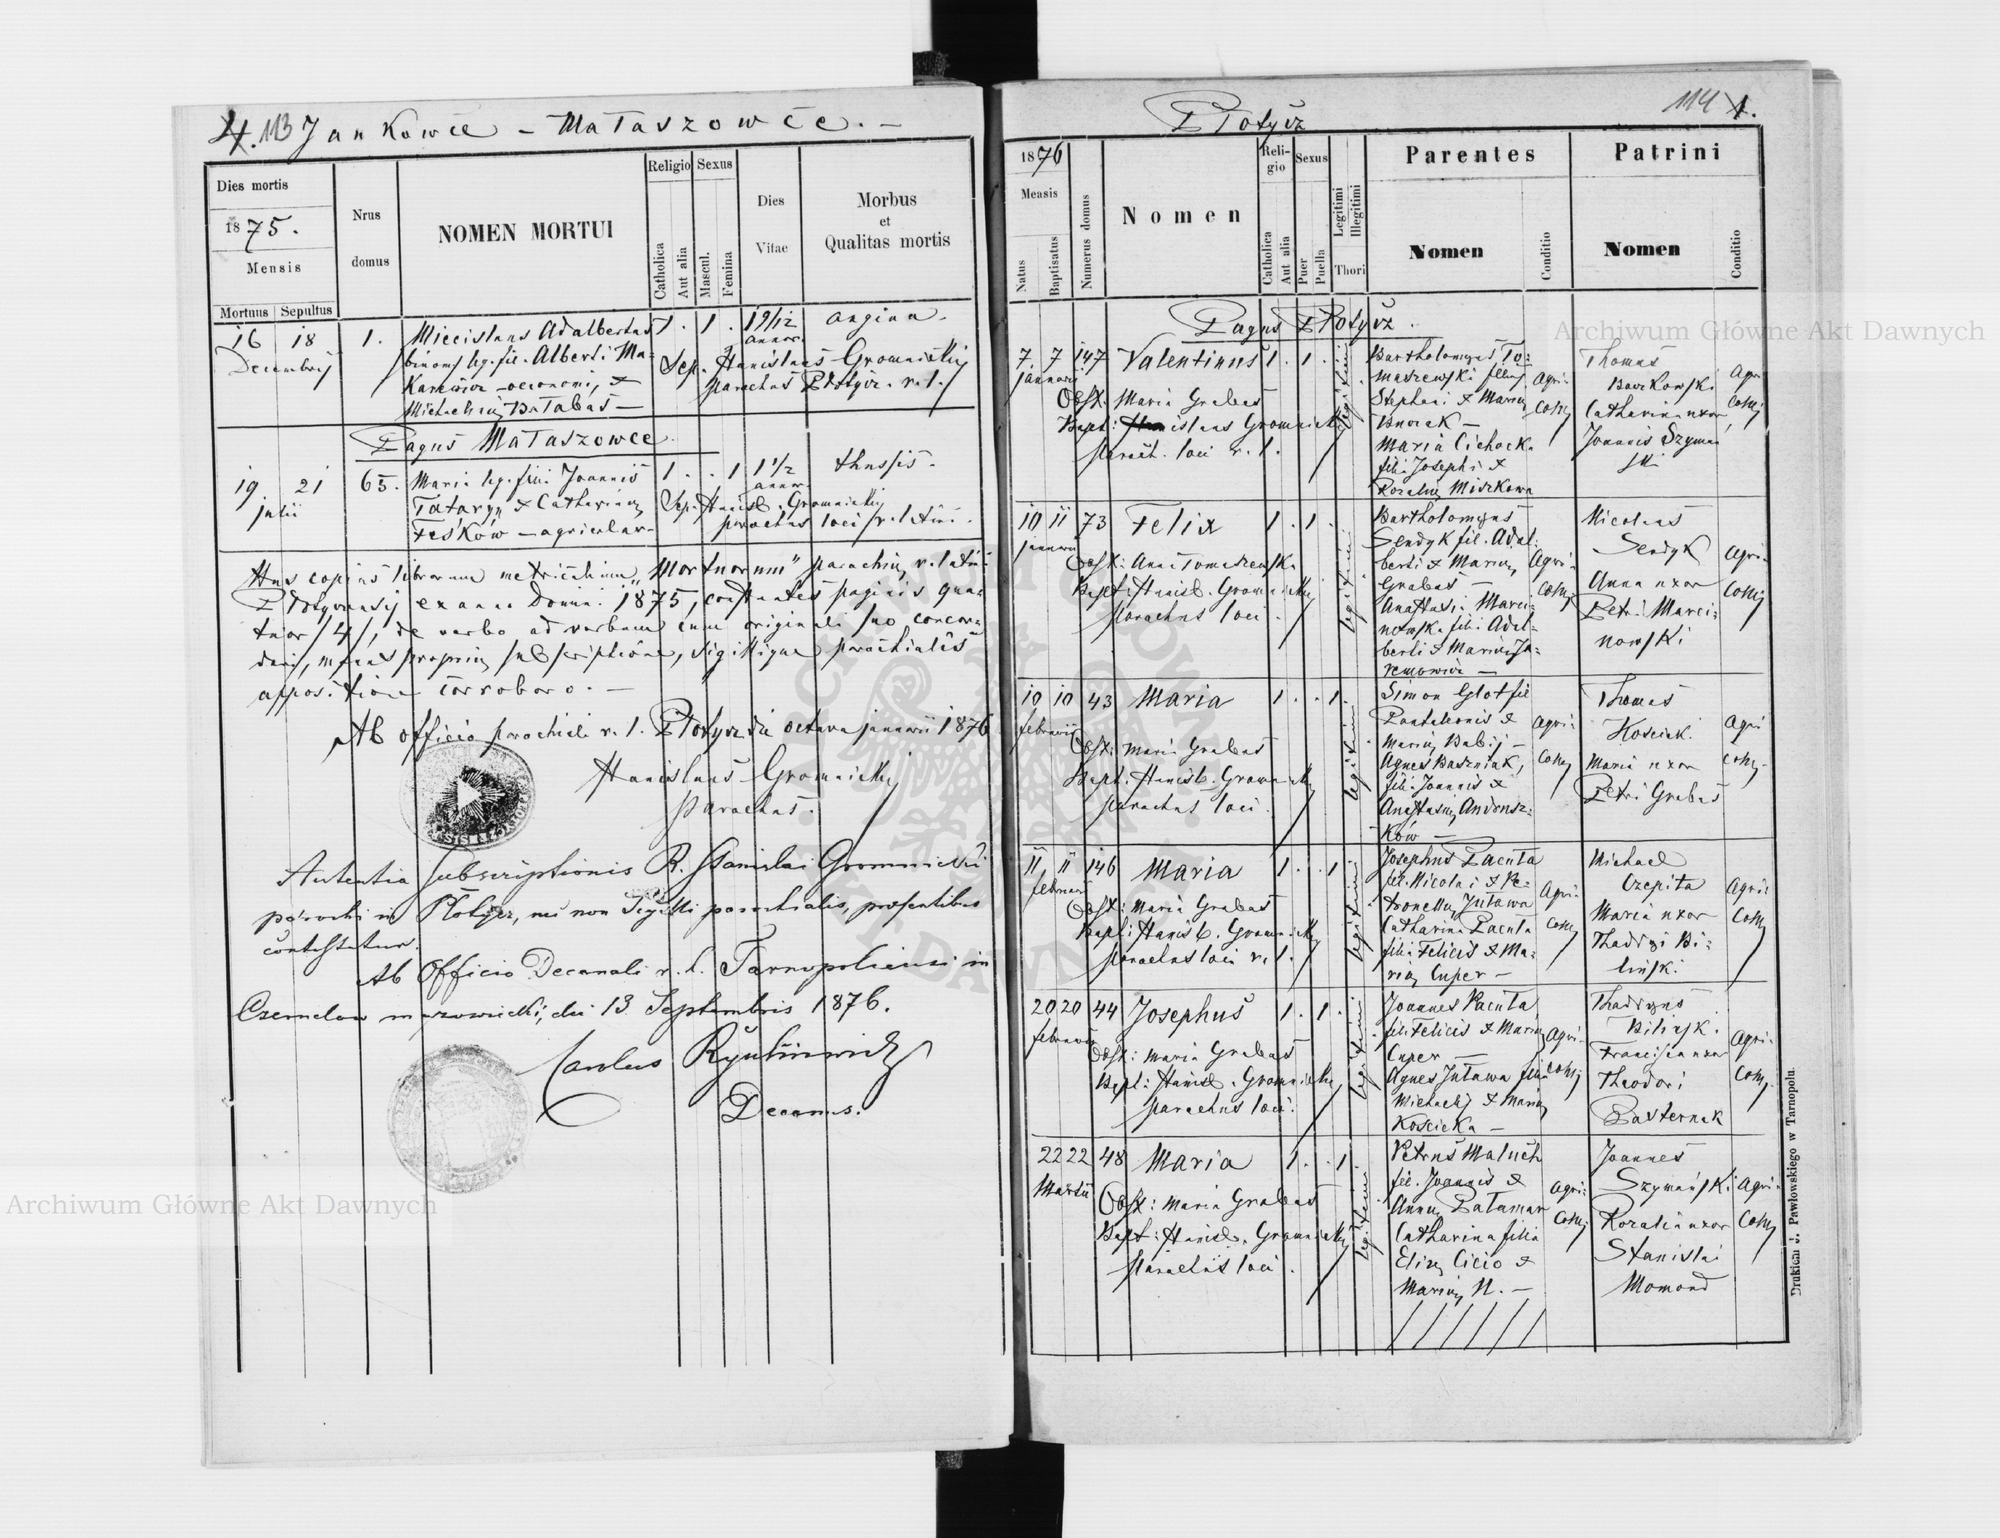 4. 113 Jankowce – Mataszowce. –
Dies mortis
1875.
Mensis
Mortuus Sepultus
Nrus
domus
NOMEN MORTUI
Religio
Catholica
Aut alia
Sexus
Mascul.
Femina
Dies
Vitae
Morbus
et
Qualitas mortis
16 18
Decembrij
1.
Miecislaus Adalbertus
binom leg. fil. Alberti Ma-
Karewicz oeconomi, et
Michaelinę Bałabas –
1. 1.
19/12
annor.
angina.
Sep. Stanislaus Gromnicki
parochus Płotycz. r. l.
Pagus Mataszowce.
19 21
julii
65.
Maria leg. filii Joannis
Tataryn et Catharinę
Feśków – agricolar.
1. . 1
1 1/2
annor.
thussis.
Sep. Stanisl. Gromnicki
parochus loci r. latini.
Has copias librorum metricalium „Mortuorum" parochię r. latini
Płotycensis ex anno Domini 1875, constantes paginis qua-
tuor /4/, de verbo ad verbum cum originali suo concor-
dari, manus proprię subscriptione, sigillique parochialis
appositione corroboro. –
Ab officio parochiali r. l. Płotycz die octava januarii 1876
Stanislaus Gromnicki
parochus.
Autentia subscriptionis R. Stanislai Gromnicki
parochi in Płotycz, nec non Sigilli parochialis, praesentibus
contestatur.
Ab Officio Decanali r. l. Tarnopoliensi in
Czernelow mazowiecki, die 13 Septembris 1876.
Carolus
Decanus.
114 1.
Płotycz
1876
Mensis
Natus
Baptisatus
Numerus domus
Nomen
Reli-
gio
Catholica
Aut alia
Sexus
Puer
Puella
Legitimi
Illegitimi
Thori
Parentes
Nomen
Conditio
Patrini
Nomen
Conditio
Pagus Płotycz.
7 7 147
januarii
Valentinus
1. . 1.
legitimi
Obst. Maria Grabas
Bapt: Stanislaus Gromnicki
paroch. loci r. l.
Bartholomęus To-
maszewski filius
Stephani et Marię
Bnorak –
Maria Cichocka
filia Josephi et
Rozalię Miszkowa
Agri-
colę
Thomas
Baczkowski
Catharina uxor
Joannis Szymań
ski
Agri-
colę
10 11 73
januarii
Felix
1. . 1.
legitimi
Obst: Anna Tomaszewska
Bapt: Stanisl. Gromnicki
parochus loci.
Bartholomęus
Sendyk fil. Adal-
berti et Marię
Grabas –
Anastasia Marci-
nowska filia Adal-
berti et Marię Ja-
remowicz –
Agri-
colę
Nicolaus
Sendyk
Anna uxor
Petri Marci-
nowski
Agri-
colę
10 10 43
februarii
Maria
1. . . 1.
legitimi
Obst: Maria Grabas
Bapt. Stanisl. Gromnicki
parochus loci.
Simon Glot fil
Pantaleonis et
Marię Babij –
Agnes Baszniak,
filia Joannis et
Anastasię Andrusz-
ków –
Agri-
colę
Thomas
Kościuk.
Maria uxor
Petri Grabas
Agri-
colę
11 11 146
februarii
Maria
1. . . 1.
legitimi
Obst: Maria Grabas
Bapt: Stanisl. Gromnicki
parochus loci r. l.
Josephus Pacuta
fil. Nicolai et Pe-
tronellę Jutawa
Catharina Pacuta
filia Felicis et Ma-
rię Cuper –
Agri-
colę
Michael
Czepita
Maria uxor
Thadęi Bi-
liński.
Agri-
colę
20 20 44
februarii
Josephus
1. . 1.
legitimi
Obst: Maria Grabas
Bapt: Stanisl. Gromnicki
parochus loci.
Joannes Pacuta
fil. Felicis et Marię
Cuper –
Agnes Jutawa filia
Michaelis et Marię
Kościcka –
Agri-
colę
Thadęus
Bilińsk.
Francisca uxor
Theodori
Pasternak
Agri-
colę
22 22 48
Martii
Maria
1. . . 1.
legitimi
Obst: Maria Grabas
Bapt: Stanisl. Gromnicki
parochus loci.
Petrus Maluch
fil. Joannis et
Annę Patamar
Catharina filia
Elię Cicio et
Marię N. –
Agri-
colę
Joannes
Szymański
Rozalia uxor
Stanislai
Momond
Agri-
colę
Drukiem J. Pawłowskiego w Tarnopolu.
Archiwum Główne Akt Dawnych
Archiwum Główne Akt Dawnych